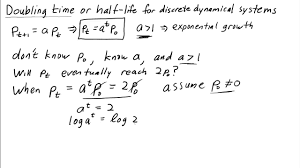 Doubling time or half-life for discrete dynamical systems
P_{t+1} = a P_t ⇒ P_t = a^t P_0  a>1 ⇒ exponential growth
don't know P_0, know a, and a>1
Will P_t eventually reach 2P_0?
When P_t = a^t P_0 = 2P_0  assume P_0 ≠ 0
a^t = 2
log a^t = log 2